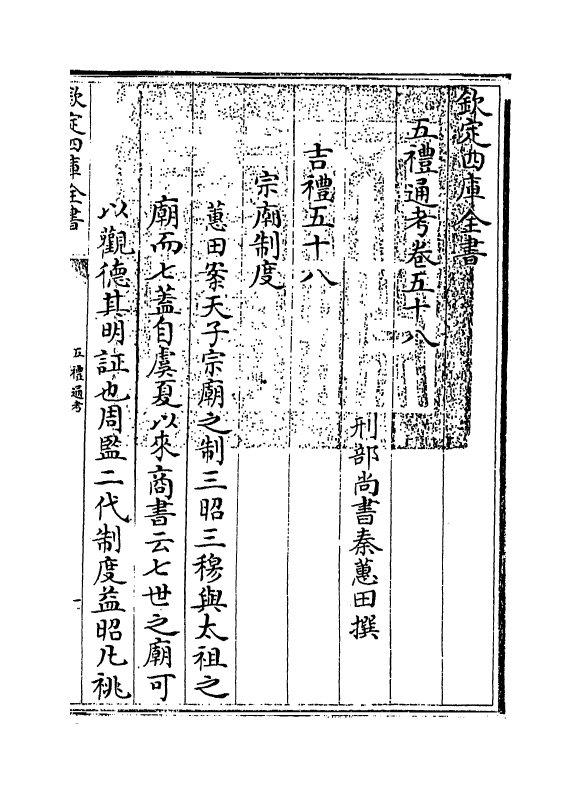 欽定四庫全書
五禮通考卷五十八
刑部尚書秦蕙田撰
吉禮五十八
宗廟制度
蕙田案天子宗廟之制三昭三穆與太祖之
廟而七蓋自虞夏以來商書云七世之廟可
以觀德其明証也周監二代制度益昭凡祧
欽定四庫全書
五禮通考
一